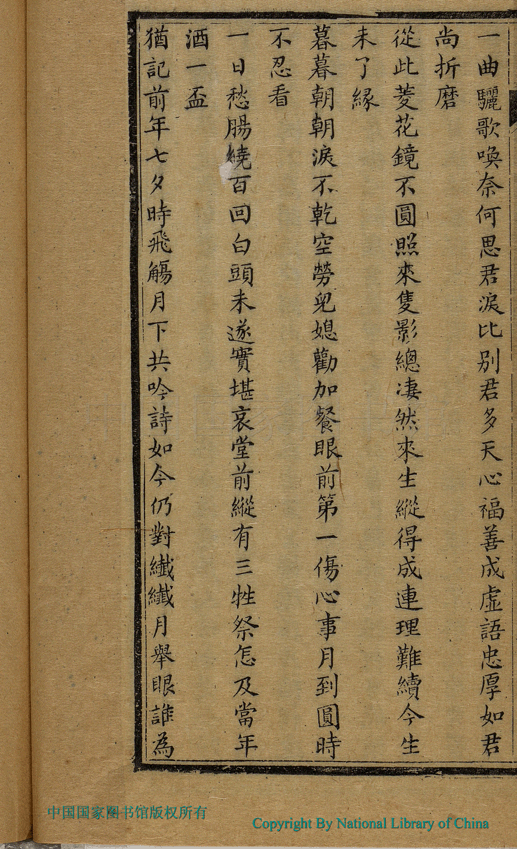 一曲驪歌喚奈何思君淚比别君多天心福善成虛語忠厚如君
尚折磨
從此菱花鏡不圓照來隻影總凄然來生縱得成連理難續今生
未了緣
暮暮朝朝淚不乾空勞兒媳勸加餐眼前第一傷心事月到圓時
不忍看
一日愁腸繞百回白頭未遂實堪哀堂前縱有三牲祭怎及當年
酒一盃
猶記前年七夕時飛觴月下共吟詩如今仍對纖纖月舉眼誰為
中国国家图书馆版权所有
Copyright By National Library of China